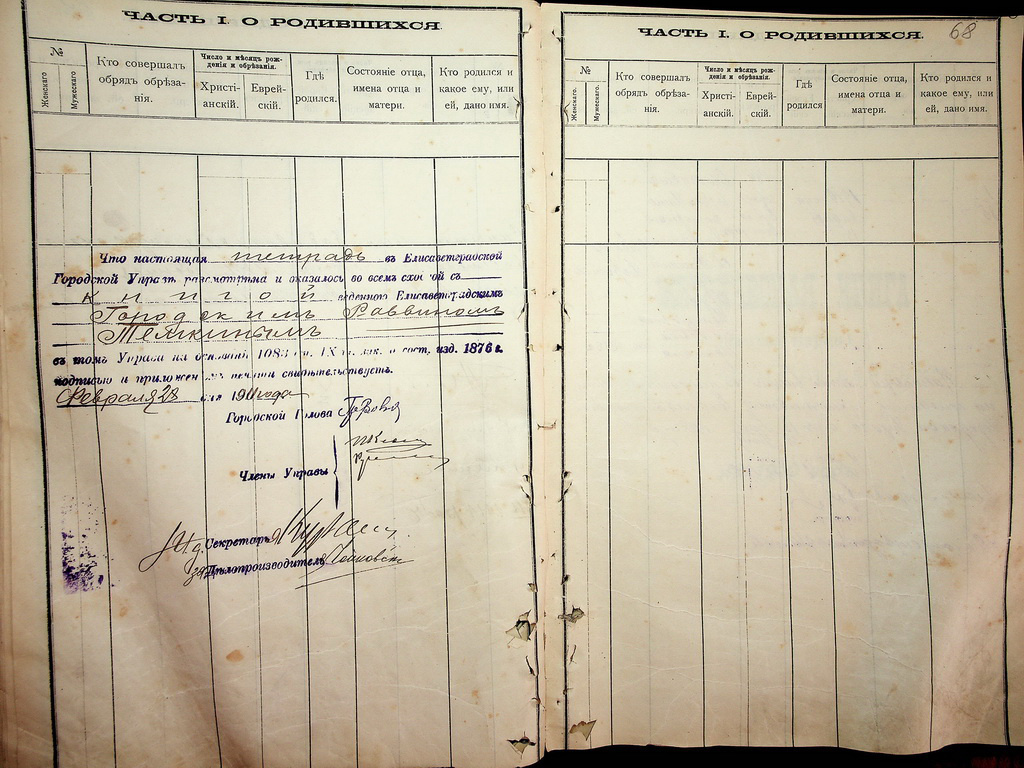 ЧАСТЬ I. О РОДИВШИХСЯ.
№
Женскаго
Мужескаго
Кто совершалъ обрядъ обрѣза-нія.
Число и мѣсяцъ рож-денія и обрѣзанія.
Христі-анскій.
Еврей-скій.
Гдѣ родился.
Состояніе отца, имена отца и матери.
Кто родился и какое ему, или ей, дано имя.
Что настоящая тетрадь въ Елисаветградской
Городской Управѣ разсмотрѣна и оказалось во всемъ сход ой съ
книгой веденною Елисаветградскимъ
Городскимъ Раввиномъ
Темкинымъ
въ томъ Управа на основаніи 1083 ст. IX т. зак. о сост. изд. 1876 г.
подписью и приложен мъ печати свидѣтельствуетъ.
Февраля 28 дня 191 года
Городской Голова
Члены Управы
Секретарь
Дѣлопроизводитель
68
ЧАСТЬ I. О РОДИВШИХСЯ.
№
Женскаго.
Мужескаго.
Кто совершалъ обрядъ обрѣза-нія.
Число и мѣсяцъ рож-денія и обрѣзанія.
Христі-анскій.
Еврей-скій.
Гдѣ родился
Состояніе отца, имена отца и матери.
Кто родился и какое ему, или ей, дано имя.